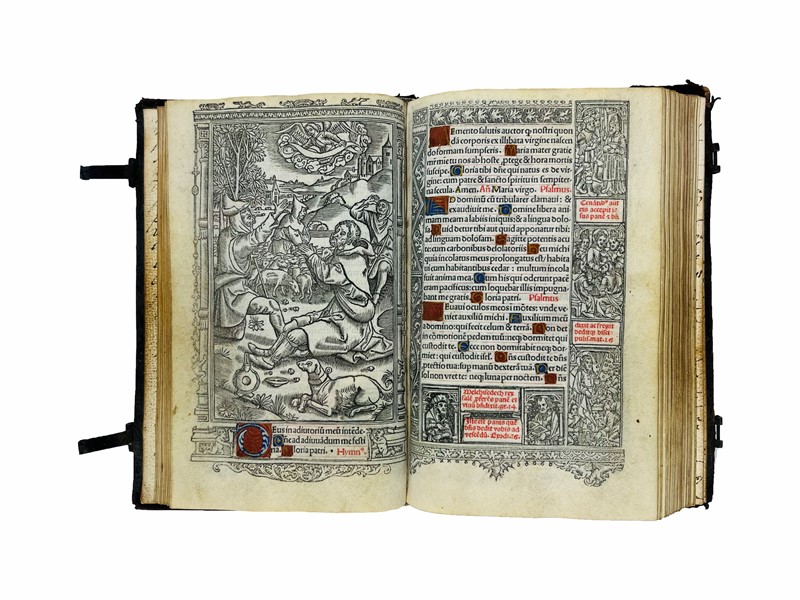 Eus in adiutoriū meū intēde
ne ad adiuuādum me festi
na. Gloria patri. Hymnꝰ.
Emento salutis auctor qꝫ nostri quon
dā corporis ex illibata virgine nascen
do formam sumpseris. Maria mater gratie
mr̄ mie tu nos ab hoste ꝓtege & hora mortis
suscipe. Gloria tibi dn̄e qui natus es de vir-
gine: cum patre & sancto spiritu in sempiter
na secula. Amen. Añ. Maria virgo. Psalmus.
D dominū cū tribularer clamaui: &
exaudiuit me. Domine libera ani-
mam meam a labiis iniquis: & a lingua dolo-
sa. Quid detur tibi aut quid apponatur tibi:
ad linguam dolosam. Sagitte potentis acu
te: cum carbonibus desolatoriis. Heu michi
quia incolatus meus prolongatus est/ habita
ui cum habitantibus cedar: multum incola
fuit anima mea. Cum his qui oderunt pacem
eram pacificus: cum loquebar illis impugna-
bant me gratis. Gloria patri. Psalmus
Euaui oculos meos ī mōtes: vnde ve
niet auxiliū michi. Auxilium meū
a domino: qui fecit celum & terrā. Non det
in cōmotionē pedem tuū: neqꝫ dormitet qui
custodit te. Ecce non dormitabit neqꝫ dor-
miet: qui custodit isrl̄. Dn̄s custodit te dn̄s
ꝓtectio tua: sup manū dexterā tuā. Per diē
sol non vret te: neqꝫ luna per noctem. Dn̄s
Cenātibꝰ aut
eis accepit ie
sus panē & bn̄
dixit ac fregit
deditqꝫ disci
pulis mat. 26
Melchisedech rex
salē ꝓferēs panē et
vinū bn̄dixit. gē. 14.
Iste est panis quē
dn̄s dedit vobis ad
vescēdū. Exodi. 16.